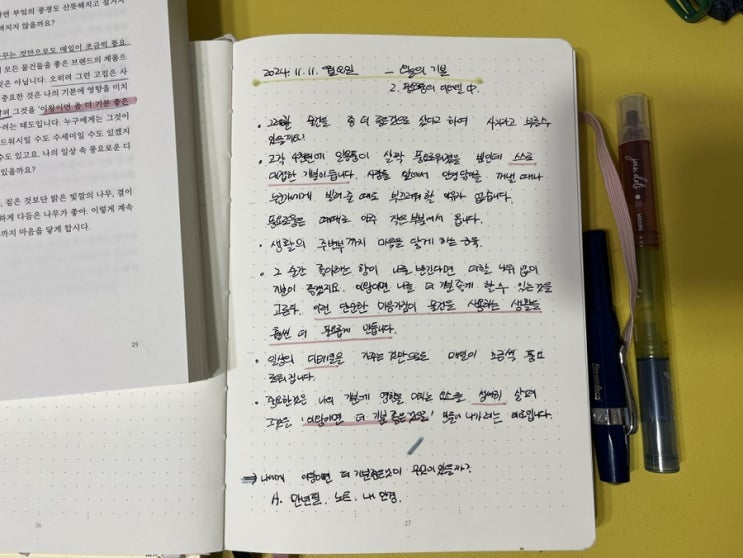 면 부엌의 풍경도 산뜻해지고 설거지
해지지 않을까요?
꾸는 것만으로도 매일이 조금씩 풍요
모든 물건들을 좋은 브랜드의 제품으
것은 아닙니다. 오히려 그런 고집은 사
중요한 것은 나의 기분에 영향을 미치
그것을 '이왕이면 좀 더 기분 좋은
려는 태도입니다. 누구에게는 그것이
드워시일 수도 수세미일 수도 있겠지
수도 있고요. 나의 일상 속 풍요로운 디
있을까요?
, 짙은 것보단 밝은 빛깔의 나무, 결이
하게 다듬은 나무가 좋아. 이렇게 계속
까지 마음을 닿게 합시다.
25
26
2024. 11. 11. 월요일 — 오늘의 기분
2. 풍요로움의 디테일 中.
• 그깟 물건을 좀 더 좋은 것으로 샀다고 하여 사치라고 부를 수
있을까요?
• 고작 수세미에 일상이 살짝 풍요로워졌을 뿐인데 스스로
대접한 기분이 듭니다. 사람들 앞에서 꺼낼 때나
누군가에게 빌려줄 때도 부끄러워할 이유가 없습니다.
풍요로움은 때때로 아주 작은 부분에서 옵니다.
• 생활의 주변부까지 마음을 닿게 하는 궁목.
• 그 순간 좋아하는 향이 나를 반긴다면 더할 나위 없이
기분이 좋겠지요. 이왕이면 나를 더 기분 좋게 할 수 있는 것을
고른다. 이런 단순한 마음가짐이 물건을 사용하는 생활을
훨씬 더 풍요롭게 만듭니다.
• 일상의 디테일을 가꾸는 것만으로도 매일이 조금씩 풍요
로워집니다.
• 중요한 것은 나의 기분에 영향을 미치는 요소를 섬세히 살피며
그것을 '이왕이면 더 기분 좋은 것으로' 만들어 나가려는 태도입니다.
⇒ 나에게 이왕이면 더 기분 좋은 것이 무엇이 있을까?
A. 만년필, 노트, 내 안경.
27